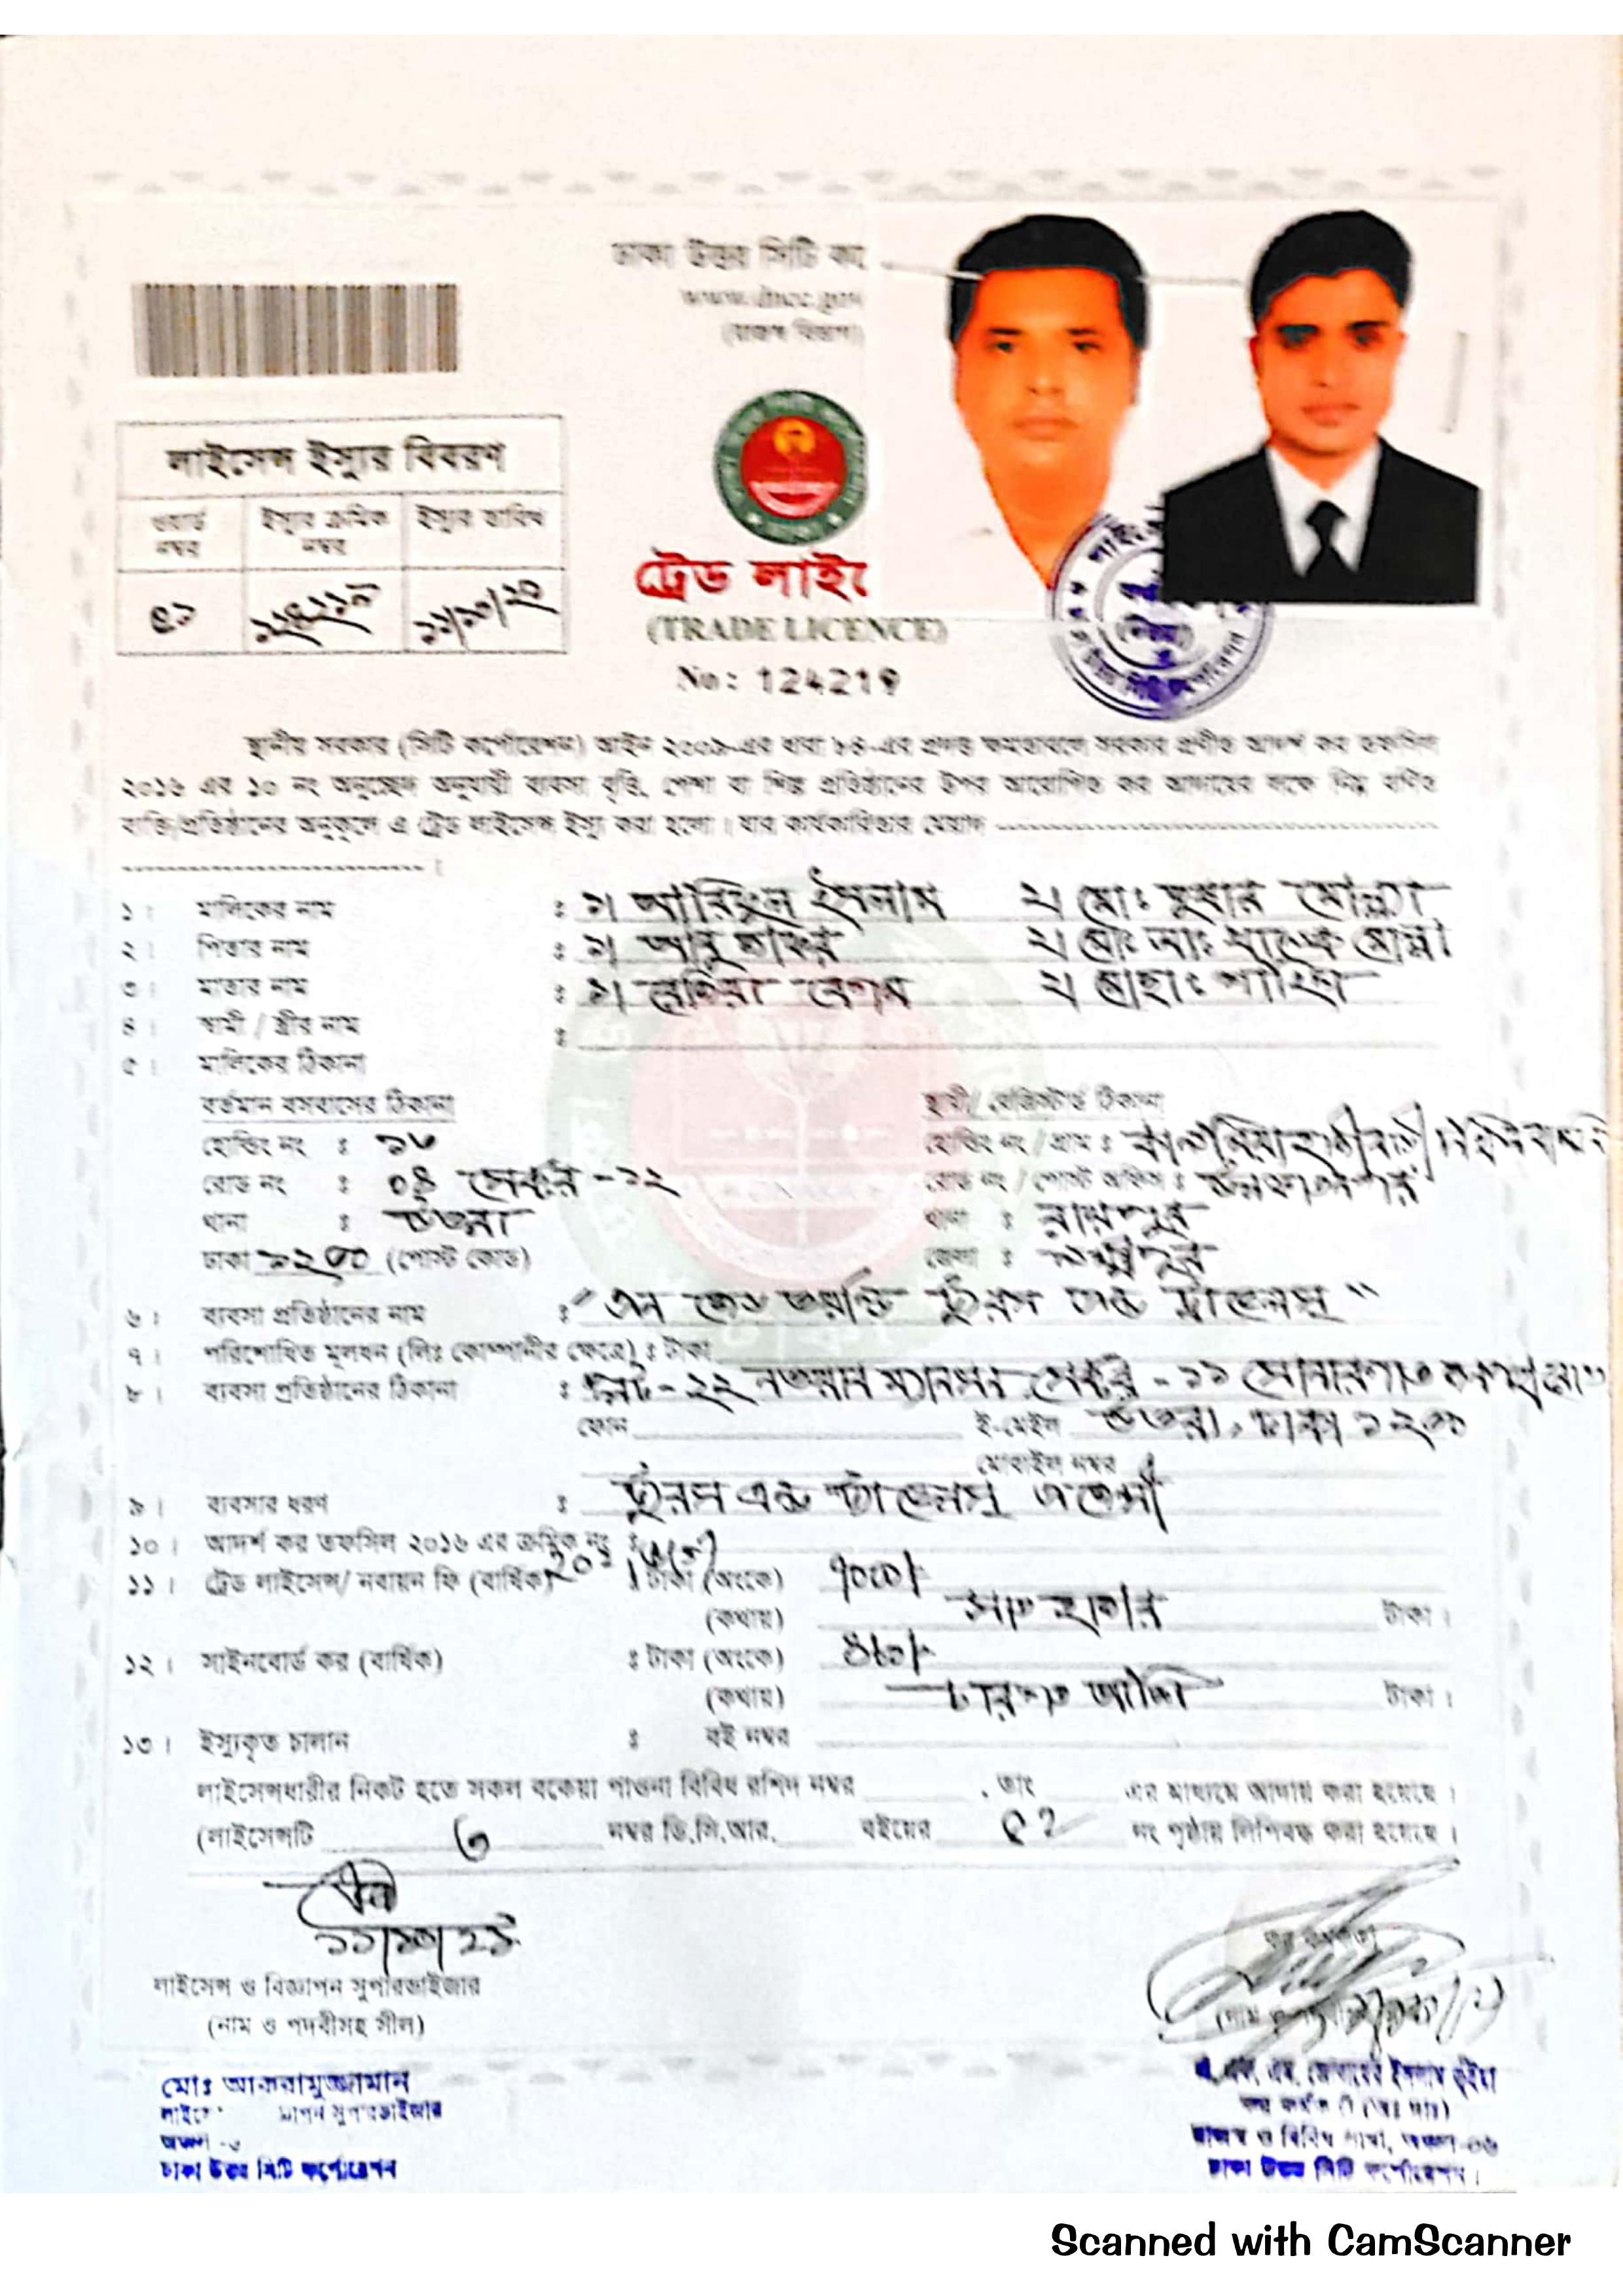 ঢাকা উত্তর সিটি কর্
www.dncc.gov
(রাজস্ব বিভাগ)
লাইসেন্স ইস্যুর বিবরণ
ওয়ার্ড নম্বর ইস্যুর ক্রমিক নম্বর ইস্যুর তারিখ
৫১ ১২৪২১৯ ১১/১০/২০
ট্রেড লাইসে
(TRADE LICENCE)
No: 124219
স্থানীয় সরকার (সিটি কর্পোরেশন) আইন ২০০৯-এর ধারা ৮৪-এর প্রদত্ত ক্ষমতাবলে সরকার প্রণীত আদর্শ কর তফসিল
২০১৬ এর ১০ নং অনুচ্ছেদ অনুযায়ী ব্যবসা বৃত্তি, পেশা বা শিল্প প্রতিষ্ঠানের উপর আরোপিত কর আদায়ের লক্ষে নিম্ন বর্ণিত
ব্যক্তি/প্রতিষ্ঠানের অনুকূলে এ ট্রেড লাইসেন্স ইস্যু করা হলো। যার কার্যকারিতার মেয়াদ
১। মালিকের নাম : ১। আরিফুল ইসলাম ২। মোঃ মোল্লা
২। পিতার নাম : ১। আবু তাহের ২। মোঃ আঃ খালেক মোল্লা
৩। মাতার নাম : ১। বেগম ২। মোহাঃ
৪। স্বামী / স্ত্রীর নাম :
৫। মালিকের ঠিকানা
বর্তমান বসবাসের ঠিকানা স্থায়ী/ রেজিস্টার্ড ঠিকানা
হোল্ডিং নং : ১৬ হোল্ডিং নং / গ্রাম :
রোড নং : ০৪ সেক্টর - ১২ রোড নং / পোস্ট অফিস :
থানা : উত্তরা থানা : রায়পুর
ঢাকা ১২৩০ (পোস্ট কোড) জেলা : লক্ষ্মীপুর
৬। ব্যবসা প্রতিষ্ঠানের নাম : "এন জেড ওয়ার্ল্ড ট্যুরস এন্ড ট্রাভেলস্"
৭। পরিশোধিত মূলধন (লিঃ কোম্পানীর ক্ষেত্রে) : টাকা
৮। ব্যবসা প্রতিষ্ঠানের ঠিকানা : - ২২ ম্যানসন সেক্টর - ১১ সোনারগাঁও জনপথ রোড
ফোন ই-মেইল উত্তরা, ঢাকা ১২৩০
মোবাইল নম্বর
৯। ব্যবসার ধরণ : ট্যুরস এন্ড ট্রাভেলস্ এজেন্সী
১০। আদর্শ কর তফসিল ২০১৬ এর ক্রমিক নং :
১১। ট্রেড লাইসেন্স/ নবায়ন ফি (বার্ষিক) : টাকা (অংকে) ৭০০০/-
(কথায়) সাত হাজার টাকা।
১২। সাইনবোর্ড কর (বার্ষিক) : টাকা (অংকে) ৪৮০/-
(কথায়) চারশত আশি টাকা।
১৩। ইস্যুকৃত চালান : বই নম্বর
লাইসেন্সধারীর নিকট হতে সকল বকেয়া পাওনা বিবিধ রশিদ নম্বর , তাং এর মাধ্যমে আদায় করা হয়েছে।
(লাইসেন্সটি ৩ নম্বর ডি.সি.আর. বইয়ের ৫২ নং পৃষ্ঠায় লিপিবদ্ধ করা হয়েছে।
লাইসেন্স ও বিজ্ঞাপন সুপারভাইজার
(নাম ও পদবীসহ সীল)
মোঃ আকরামুজ্জামান
সুপারভাইজার
ঢাকা উত্তর সিটি কর্পোরেশন
কর কর্মকর্তা
রাজস্ব ও বিবিধ শাখা, অঞ্চল-০৬
ঢাকা উত্তর সিটি কর্পোরেশন।
Scanned with CamScanner